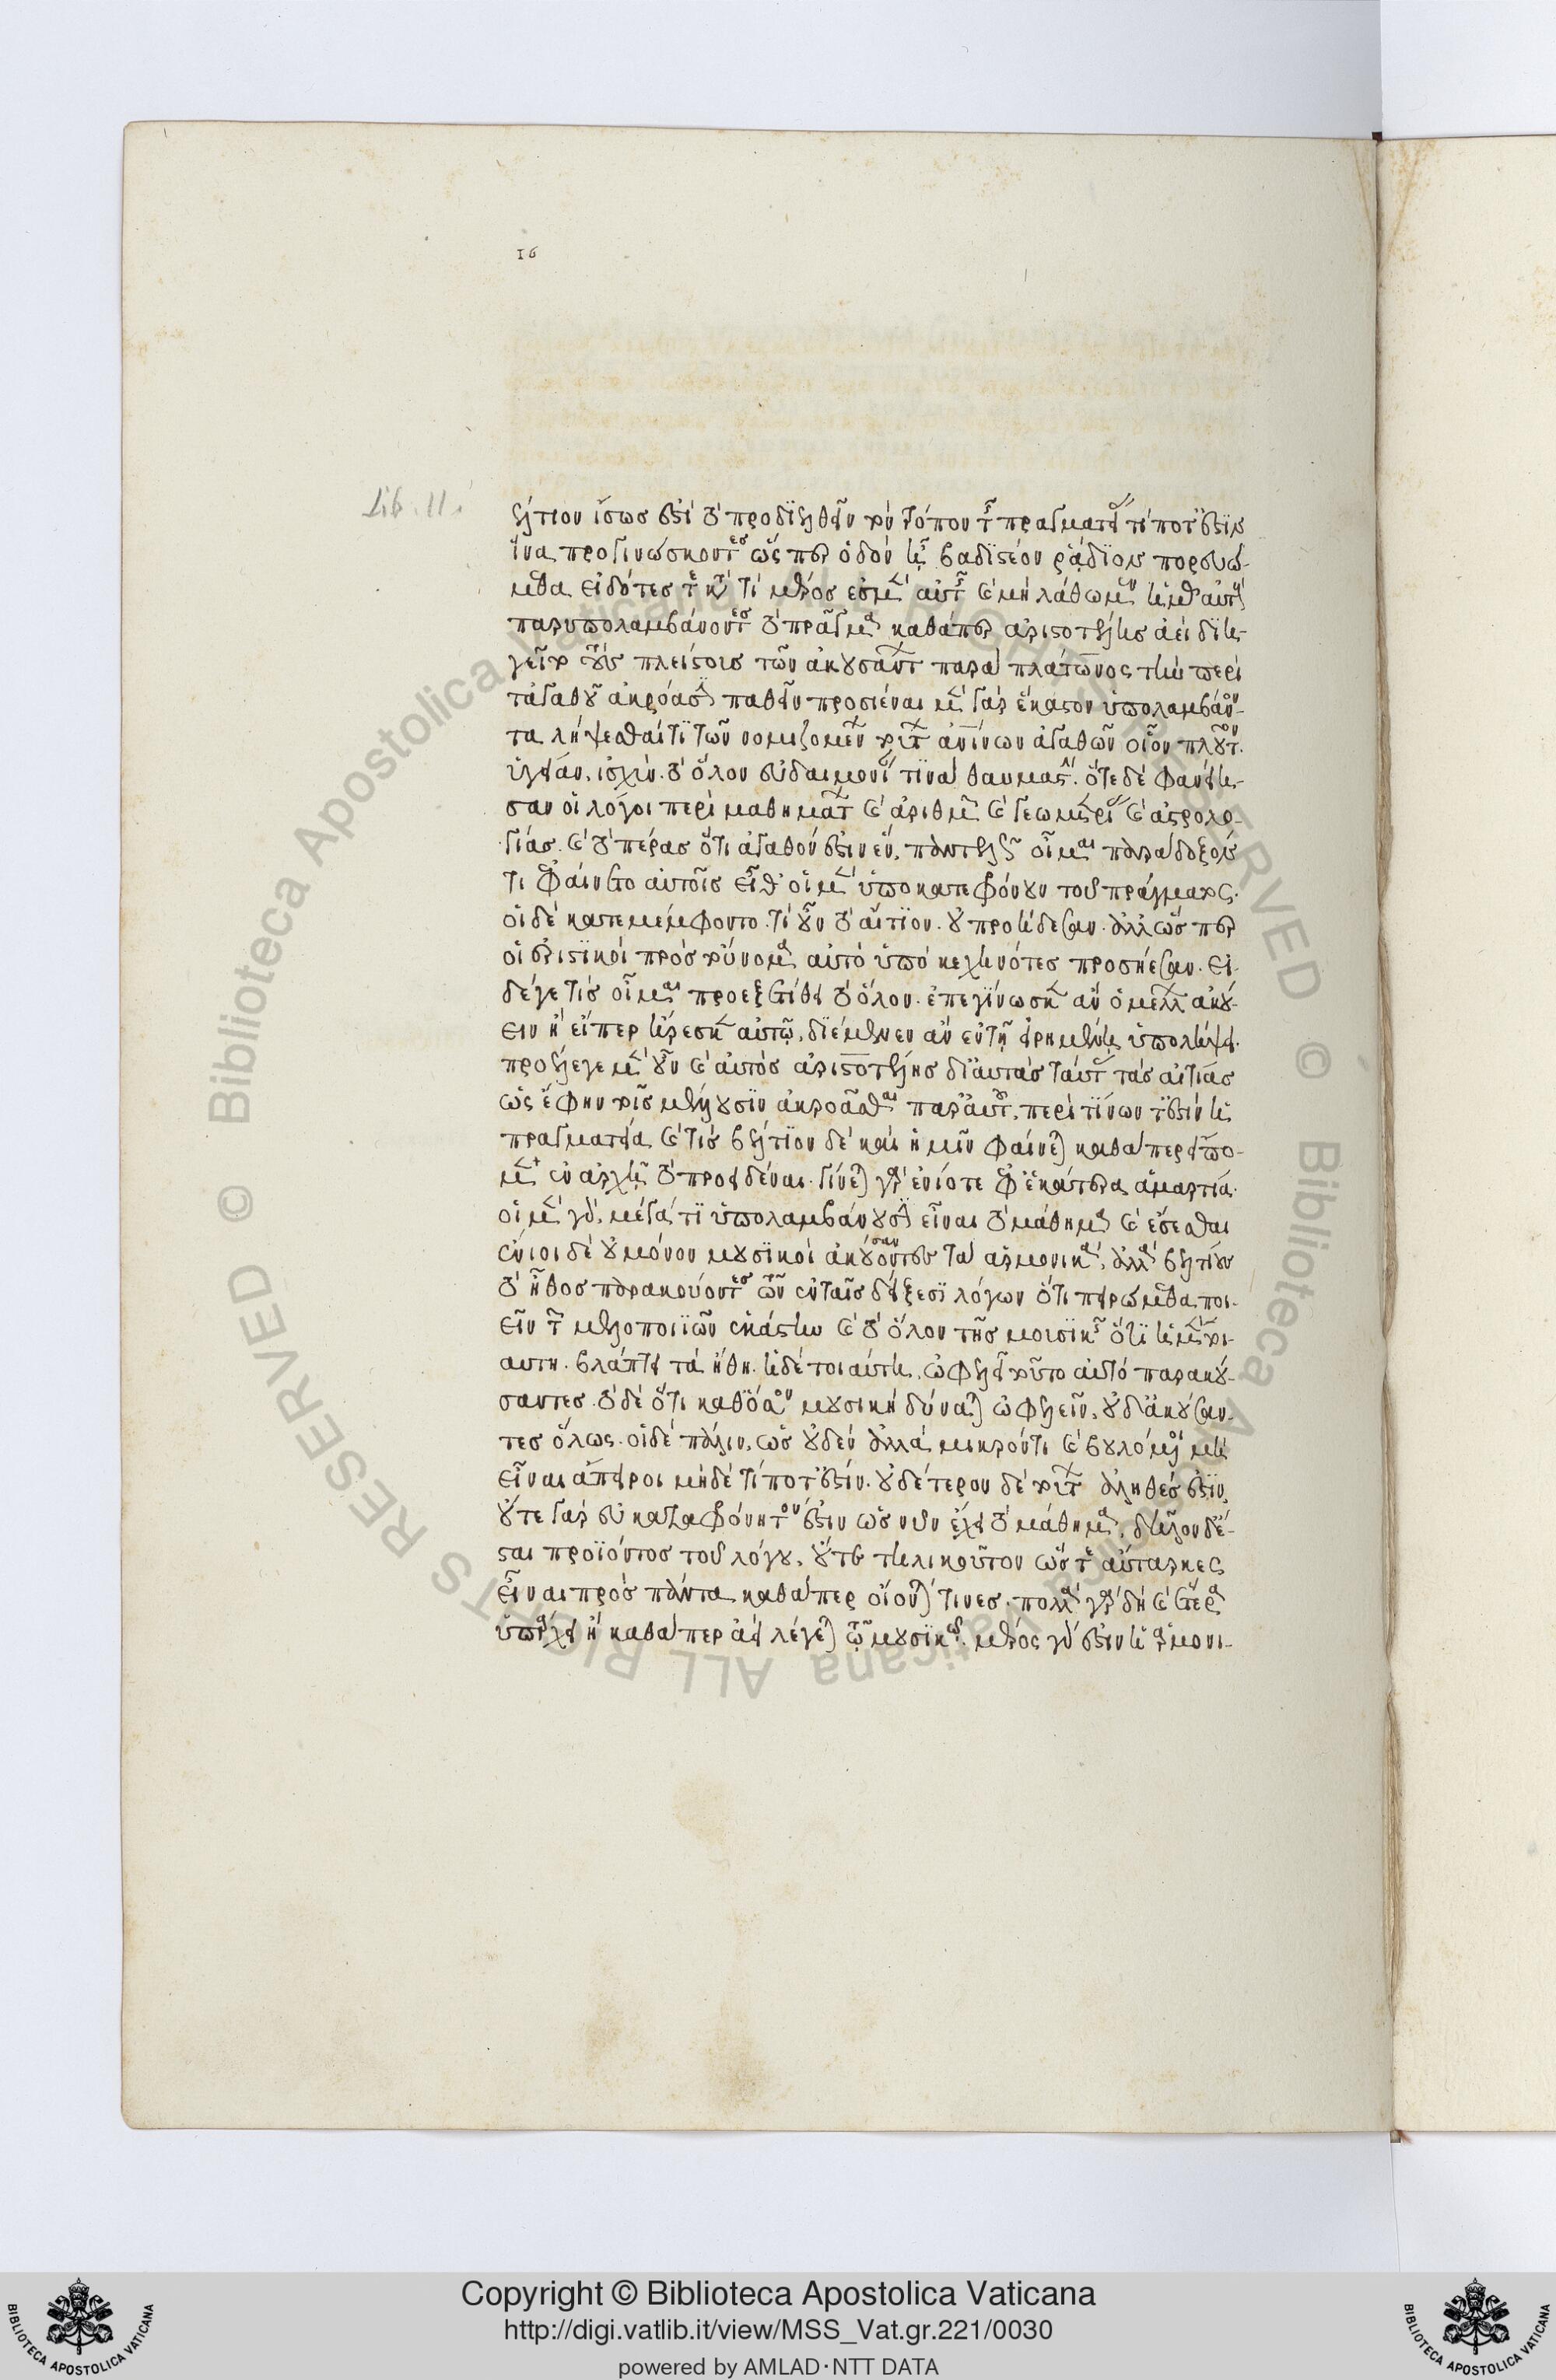 16
Lib. II.
έλτιον ἴσως ἐστὶ τὸ προδιελθεῖν τὸν τόπον τῆς πραγματείας τί ποτ' ἐστὶν
ἵνα προγινώσκοντες ὥσπερ ὁδὸν ἧ βαδιστέον ῥάδιον πορευώ-
μεθα εἰδότες τε κατὰ τί μέρος ἐσμὲν αὐτῆς καὶ μὴ λάθωμεν ἡμᾶς αὐτοὺς
παρυπολαμβάνοντες τὸ πρᾶγμα καθάπερ ἀριστοτέλης ἀεὶ διη-
γεῖτο τοῖς πλείστοις τῶν ἀκουσάντων παρὰ πλάτωνος τὴν περὶ
τἀγαθοῦ ἀκρόασιν παθεῖν προσιέναι μὲν γὰρ ἕκαστον ὑπολαμβάνον-
τα λήψεσθαί τι τῶν νομιζομένων τούτων ἀνίνων ἀγαθῶν οἷον πλοῦτον.
ὑγείαν. ἰσχύν. τὸ ὅλον εὐδαιμονίαν τινὰ θαυμαστήν. ὅτε δὲ φανείη-
σαν οἱ λόγοι περὶ μαθημάτων καὶ ἀριθμῶν καὶ γεωμετρίας καὶ ἀστρολο-
γίας. καὶ τὸ πέρας ὅτι ἀγαθόν ἐστιν ἕν. παντελῶς οἶμαι παράδοξόν
τι ἐφαίνετο αὐτοῖς εἶθ' οἱ μὲν ὑποκατεφρόνουν τοῦ πράγματος.
οἱ δὲ κατεμέμφοντο. τί οὖν τὸ αἴτιον. οὐ προήδεσαν. ἀλλ' ὥσπερ
οἱ ἐριστικοὶ πρὸς τοὔνομα αὐτὸ ὑποκεχηνότες προσήεσαν. εἰ
δέ γέ τις οἶμαι προεξετίθει τὸ ὅλον. ἐπεγίνωσκεν ἂν ὁ μέλλων ἀκού-
ειν ἢ εἴπερ ἤρεσκεν αὐτῷ. διέμενεν ἂν ἐν τῇ εἰρημένῃ ὑπολήψει.
προέλεγε μὲν οὖν καὶ αὐτὸς ἀριστοτέλης δι' αὐτὰς ταύτας τὰς αἰτίας
ὡς ἔφην τοῖς μέλλουσιν ἀκροᾶσθαι παρ' αὐτοῦ. περὶ τίνων τ' ἐστὶν ἡ
πραγματεία καὶ τίς βέλτιον δὲ καὶ ἡμῖν φαίνεται καθάπερ εἴπο-
μεν ἐν ἀρχῇ τὸ προειδέναι. γίνεται γὰρ ἐνίοτε ἐφ' ἑκάτερα ἁμαρτία.
οἱ μὲν γὰρ. μέγα τι ὑπολαμβάνουσιν εἶναι τὸ μάθημα καὶ ἔσεσθαι
ἔνιοι δὲ οὐ μόνον μουσικοὶ ἀκούσαντες τὰ ἁρμονικά. ἀλλὰ βελτίους
τὸ ἦθος παρακούοντες τῶν ἐν ταῖς δείξεσι λόγων ὅτι πειρώμεθα ποι-
εῖν τῶν μελοποιϊῶν ἑκάστην καὶ τὸ ὅλον τῆς μουσικῆς ὅτι ἡ μὲν τοι-
αύτη. βλάπτει τὰ ἤθη. ἡ δὲ τοιαύτη. ὠφελεῖ τοῦτο αὐτὸ παρακού-
σαντες. τὸ δὲ ὅτι καθ' ὅσον μουσικὴ δύναται ὠφελεῖν. οὐδ' ἀκούσαν-
τες ὅλως. οἱ δὲ πάλιν. ὡς οὐδὲν ἀλλὰ μικρόν τι καὶ βουλόμενοι μὴ
εἶναι ἄπειροι μηδὲ τί ποτ' ἐστίν. οὐδέτερον δὲ τούτων ἀληθές ἐστιν.
οὔτε γὰρ εὐκαταφρόνητόν ἐστιν ὡς νῦν ἔχει τὸ μάθημα. δῆλον δ' ἔ-
σται προϊόντος τοῦ λόγου. οὔτε τηλικοῦτον ὥστε αὔταρκες
εἶναι πρὸς πάντα καθάπερ οἴονταί τινες. πολλὰ γὰρ δὴ καὶ ἕτερα
ὑπάρχει ἢ καθάπερ ἀεὶ λέγεται τῷ μουσικῷ. μέρος γάρ ἐστιν ἡ ἁρμονι-
Copyright © Biblioteca Apostolica Vaticana
http://digi.vatlib.it/view/MSS_Vat.gr.221/0030
powered by AMLAD·NTT DATA
BIBLIOTECA APOSTOLICA VATICANA
BIBLIOTECA APOSTOLICA VATICANA
© Biblioteca Apostolica Vaticana ALL RIGHTS RESERVED
© Biblioteca Apostolica Vaticana ALL RIGHTS RESERVED